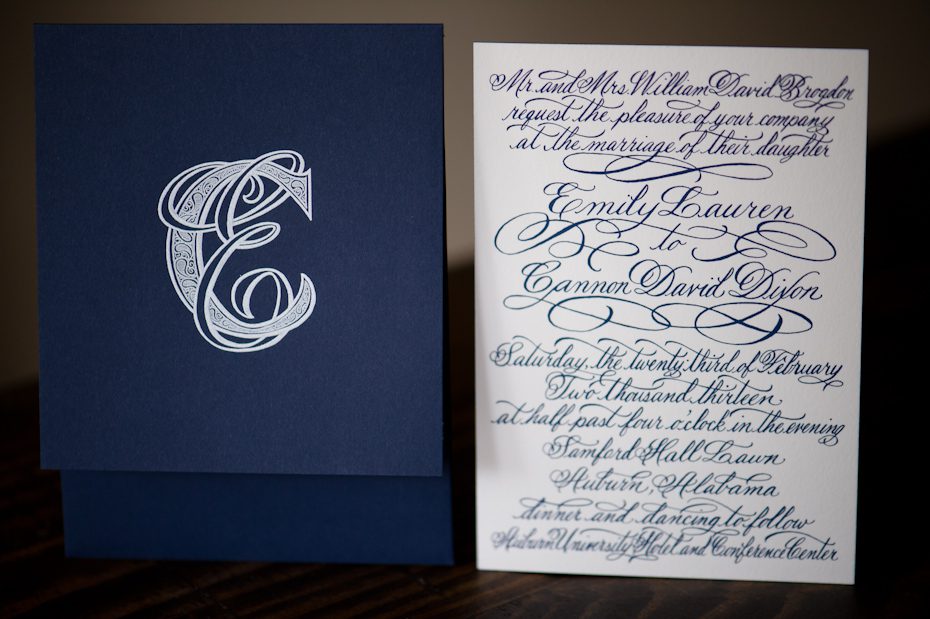 CE
Mr. and Mrs. William David Brogdon
request the pleasure of your company
at the marriage of their daughter
Emily Lauren
to
Cannon David Dixon
Saturday, the twenty third of February
Two thousand thirteen
at half past four o'clock in the evening
Samford Hall Lawn
Auburn, Alabama
dinner and dancing to follow
Auburn University Hotel and Conference Center